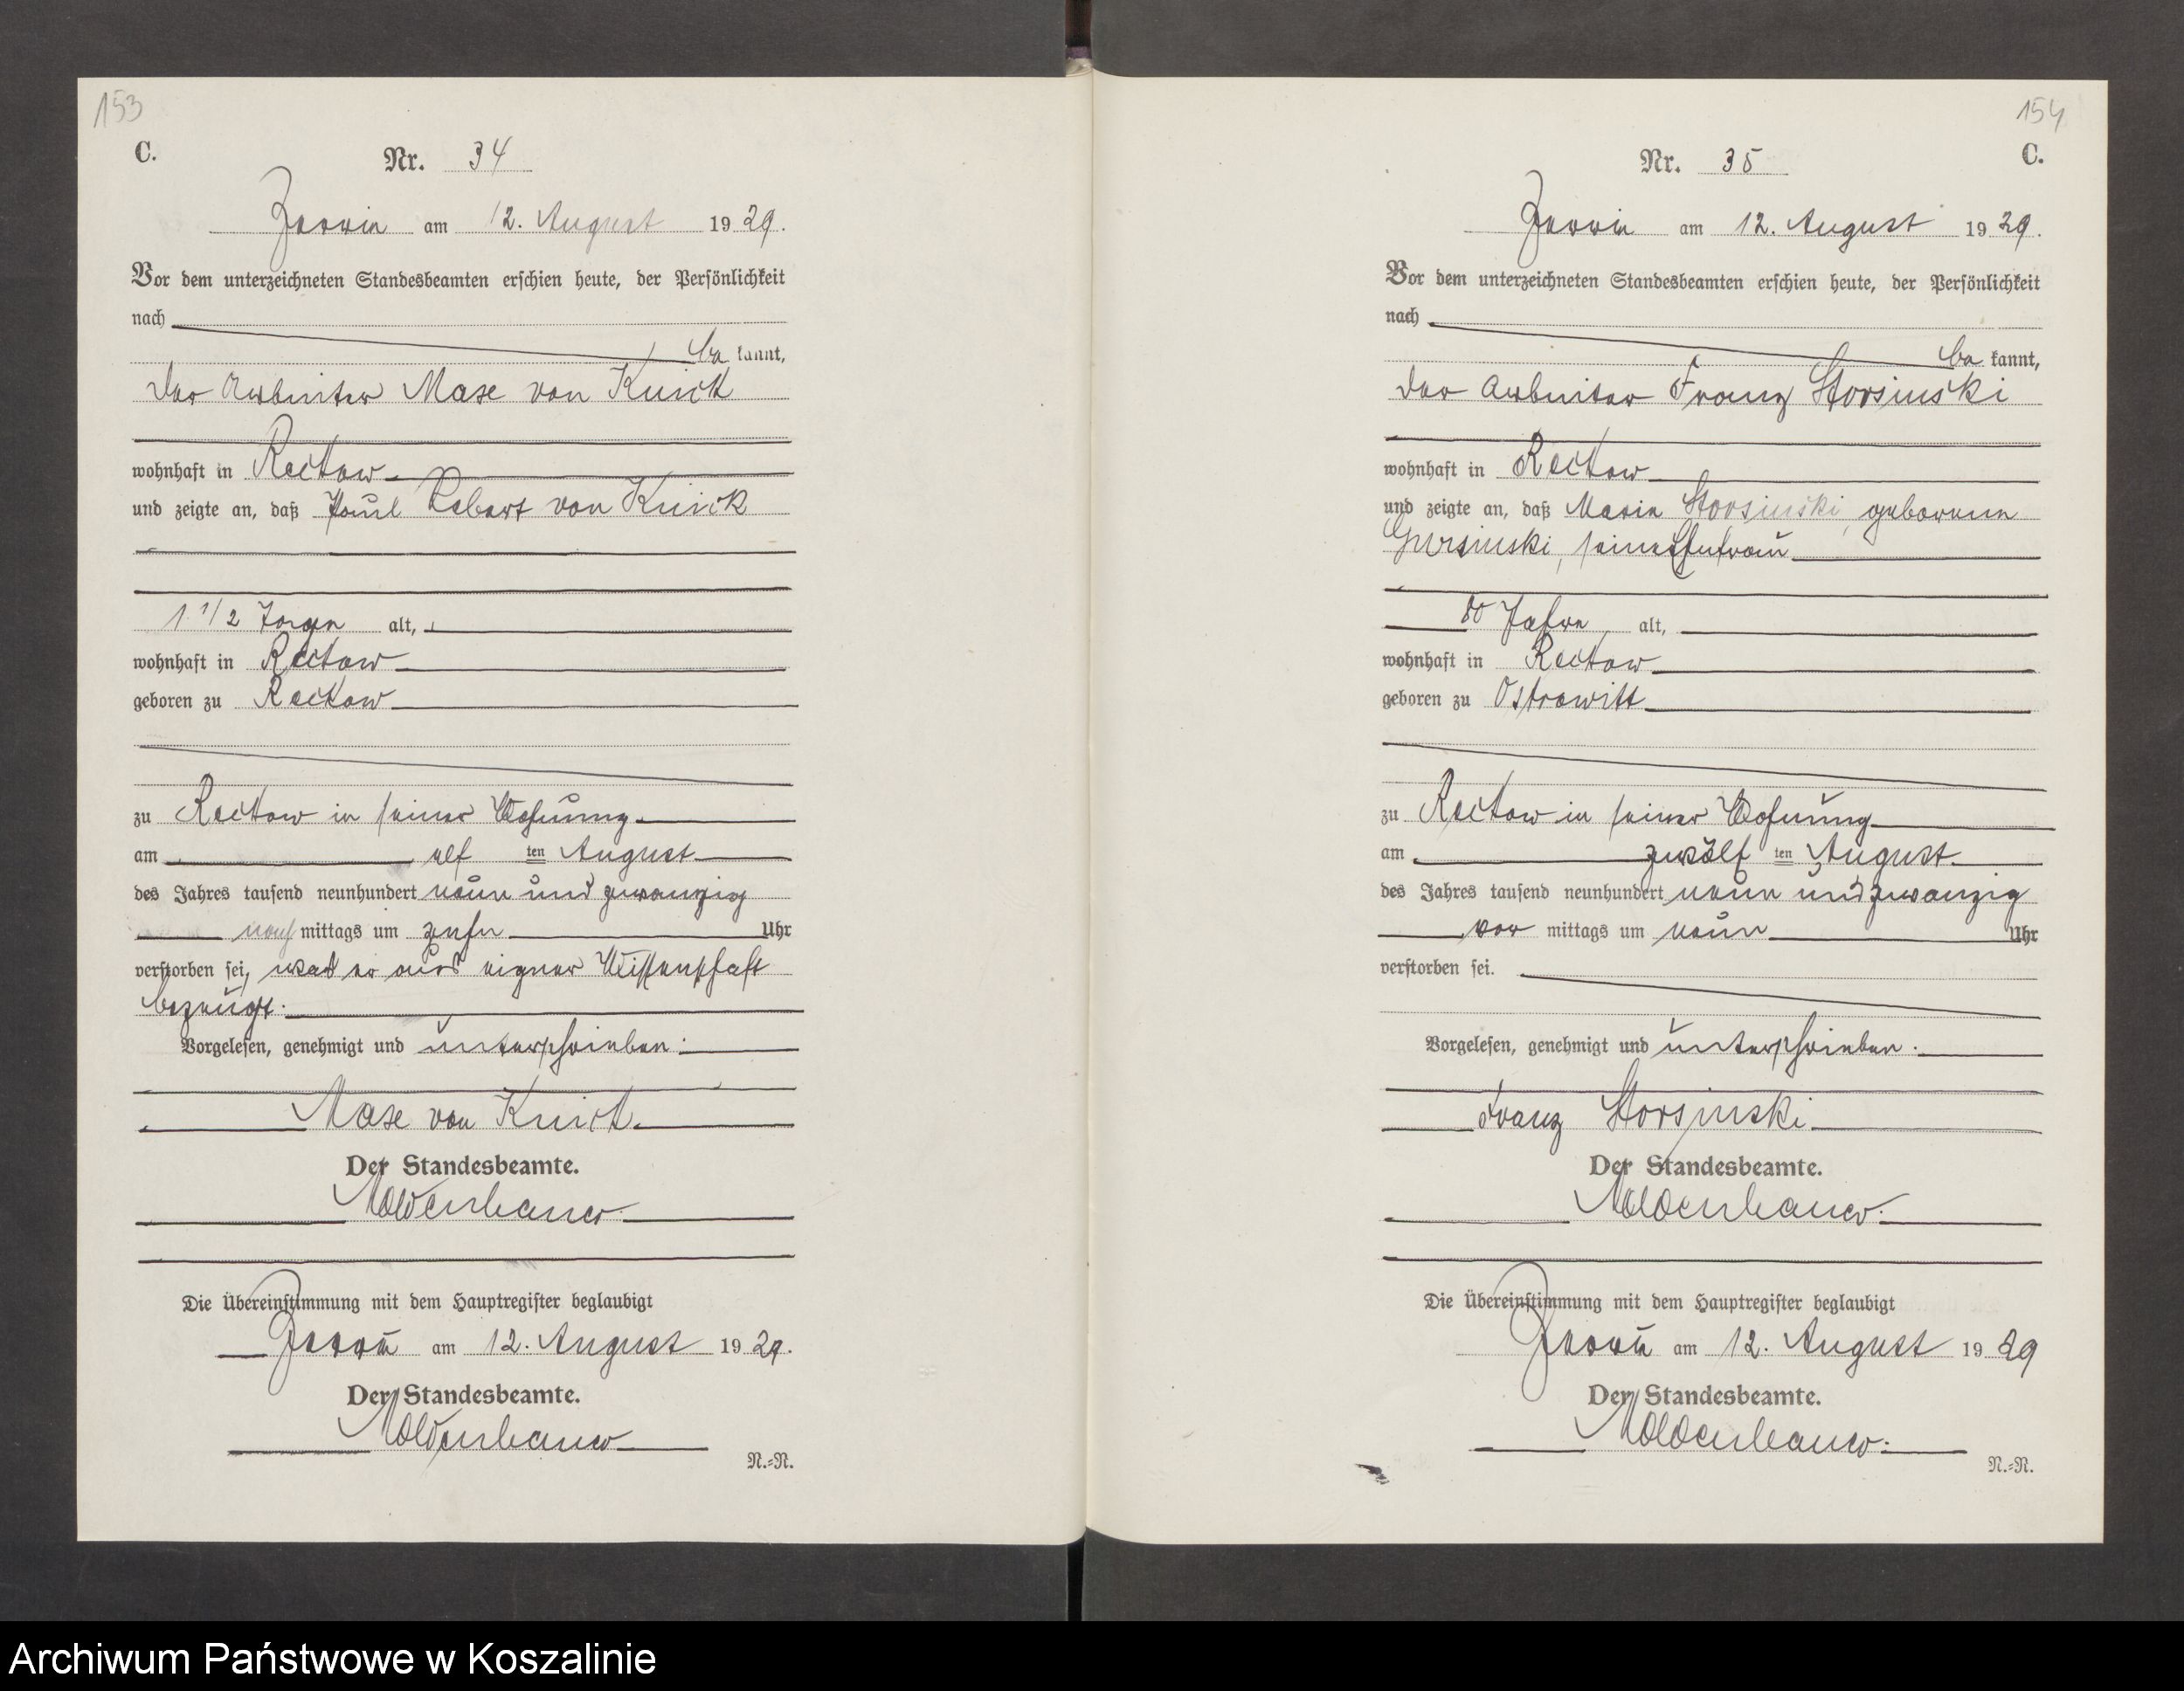 153
C.
Nr. 34
am 12. August 1929.
Vor dem unterzeichneten Standesbeamten erschien heute, der Persönlichkeit
nach
be kannt,
der Arbeiter Max von
wohnhaft in Reckow
und zeigte an, daß Paul Robert von
1 1/2 Tage alt,
wohnhaft in Reckow
geboren zu Reckow
zu Reckow in seiner Wohnung
am elf ten August
des Jahres tausend neunhundert neun und zwanzig
nach mittags um zehn Uhr
verstorben sei, was er aus eigner Wissenschaft
bezeugt.
Vorgelesen, genehmigt und unterschrieben.
von
Der Standesbeamte.
Moldenhauer.
Die Übereinstimmung mit dem Hauptregister beglaubigt
am 12. August 1929.
Der Standesbeamte.
Moldenhauer
N.-N.
154
C.
Nr. 35
am 12. August 1929.
Vor dem unterzeichneten Standesbeamten erschien heute, der Persönlichkeit
nach
be kannt,
der Arbeiter Franz Storsinski
wohnhaft in Reckow
und zeigte an, daß Marie Storsinski, geborene
seine Ehefrau
80 Jahre alt,
wohnhaft in Reckow
geboren zu Ostrowitt
zu Reckow in seiner Wohnung
am zwölf ten August
des Jahres tausend neunhundert neun und zwanzig
vor mittags um neun Uhr
verstorben sei.
Vorgelesen, genehmigt und unterschrieben.
Franz Storsinski
Der Standesbeamte.
Moldenhauer.
Die Übereinstimmung mit dem Hauptregister beglaubigt
am 12. August 1929
Der Standesbeamte.
Moldenhauer.
N.-N.
Archiwum Państwowe w Koszalinie